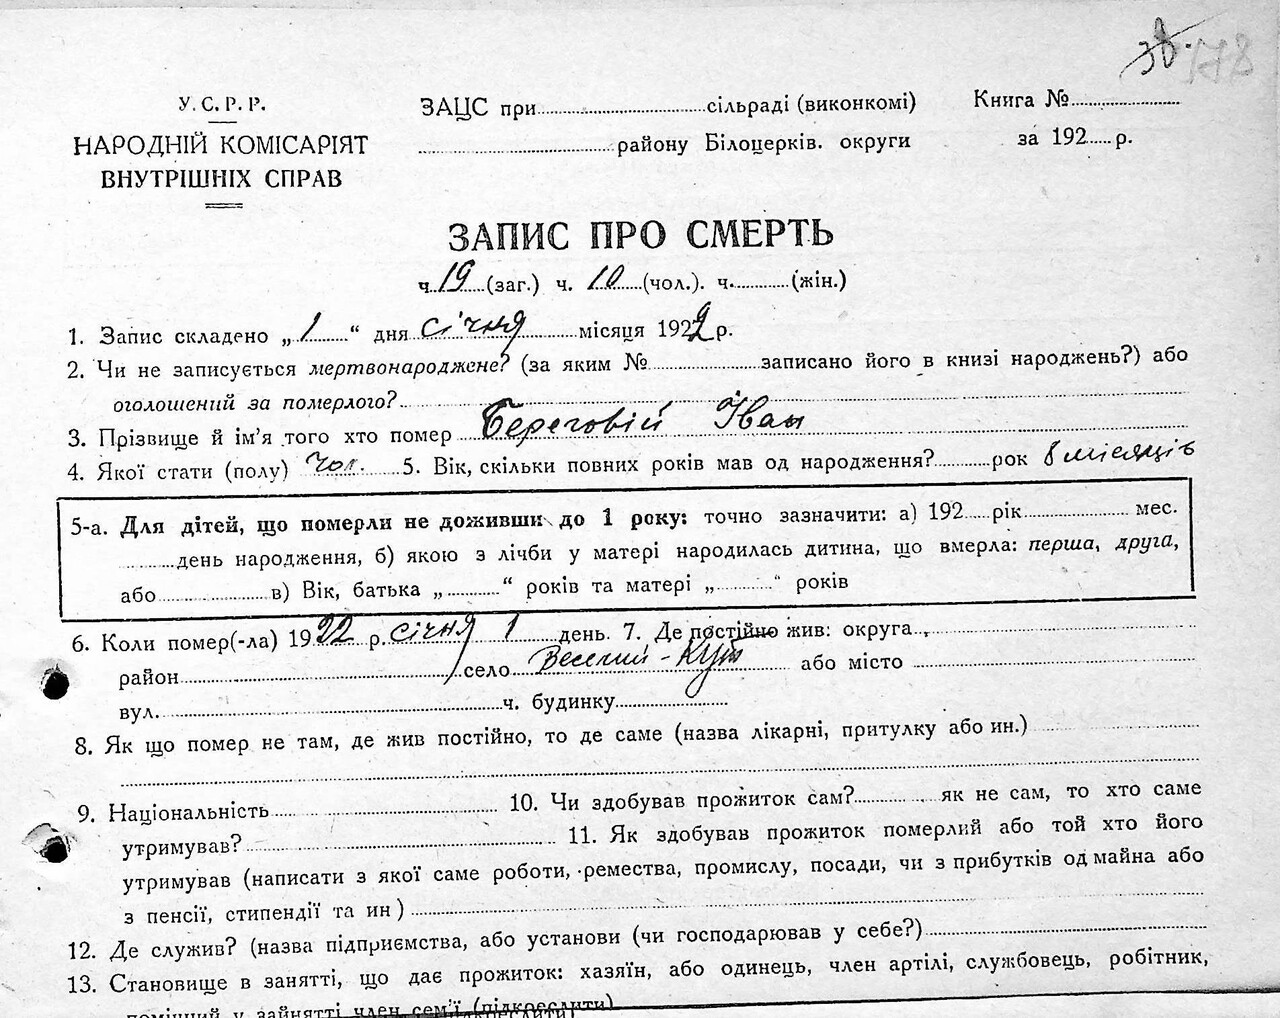 38. 178
У. С. Р. Р.
НАРОДНІЙ КОМІСАРІЯТ
ВНУТРІШНІХ СПРАВ
ЗАЦС при сільраді (виконкомі)
району Білоцерків. округи
Книга №
за 192 р.
ЗАПИС ПРО СМЕРТЬ
ч. 19 (заг.) ч. 10 (чол.). ч. (жін.)
1. Запис складено „ 1 “ дня січня місяця 1922 р.
2. Чи не записується мертвонароджене? (за яким № записано його в книзі народжень?) або
оголошений за померлого?
3. Прізвище й ім'я того хто помер Береговій Іван
4. Якої стати (полу) Чол. 5. Вік, скільки повних років мав од народження? рок 8 місяців
5-а. Для дітей, що померли не доживши до 1 року: точно зазначити: а) 192 рік мес.
день народження, б) якою з лічби у матері народилась дитина, що вмерла: перша, друга,
або в) Вік, батька „ “ років та матері „ “ років
6. Коли помер(-ла) 1922 р. січня 1 день. 7. Де постійно жив: округа
район село Веселий-Кут або місто
вул. ч. будинку
8. Як що помер не там, де жив постійно, то де саме (назва лікарні, притулку або ин.)
9. Національність 10. Чи здобував прожиток сам? як не сам, то хто саме
утримував? 11. Як здобував прожиток померлий або той хто його
утримував (написати з якої саме роботи, ремества, промислу, посади, чи з прибутків од майна або
з пенсії, стипендії та ин)
12. Де служив? (назва підприємства, або установи (чи господарював у себе?)
13. Становище в занятті, що дає прожиток: хазяїн, або одинець, член артілі, службовець, робітник,
помічний у зайнятті член сем'ї (підкреслити)